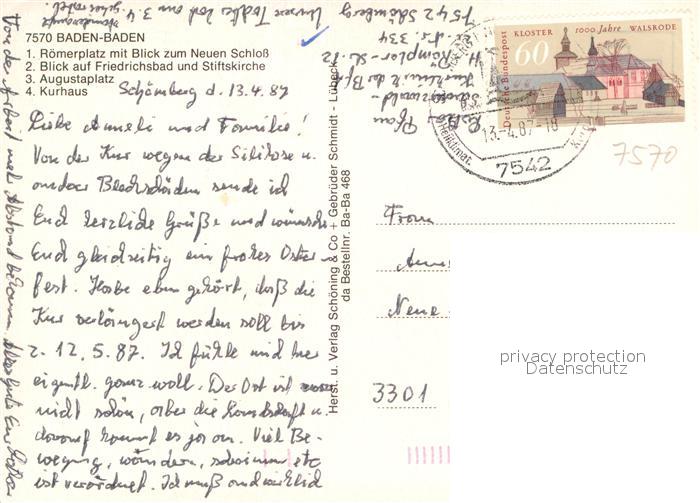 7570 BADEN-BADEN
1. Römerplatz mit Blick zum Neuen Schloß
2. Blick auf Friedrichsbad und Stiftskirche
3. Augustaplatz
4. Kurhaus
Schömberg d. 13.4.87
Liebe Anneli und Familie!
Von der Kur wegen der Silikose u.
anderer Blechschäden sende ich
Euch herzliche Grüße und wünsche
Euch gleichzeitig ein frohes Oster-
fest. Habe eben gehört, daß die
Kur verlängert werden soll bis
z. 12.5.87. Ich fühle mich hier
eigentl. ganz wohl. Der Ort ist
nicht schön, aber die Landschaft u.
darauf kommt es ja an. Viel Be-
wegung, wandern, schwimmen etc
ist verordnet. Ich muß
Von der Arbeit mal Abstand bekommen. Alles Gute Euer
Unsere Tochter hat am 3.4.
7542 Schömberg
Zi. Nr. 334
Herst. u. Verlag Schöning & Co + Gebrüder Schmidt - Lübeck
da Bestellnr. Ba-Ba 468
KLOSTER 1000 Jahre WALSRODE
60
Deutsche Bundespost
13.-4.87-18
7542
7570
Frau
Neue
3301
privacy protection
Datenschutz